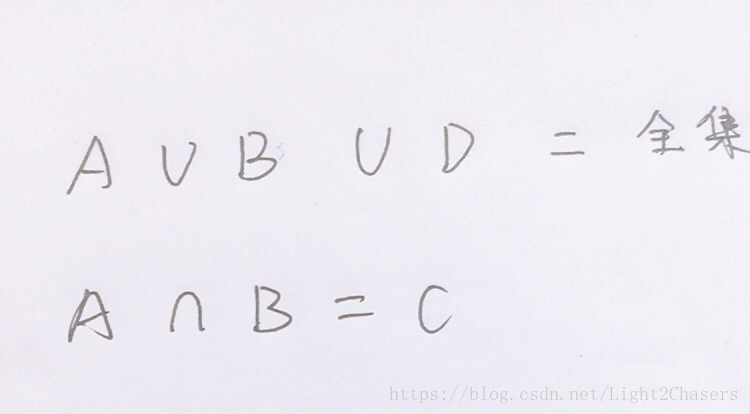 A ∪ B ∪ D = 全集
A ∩ B = C
https://blog.csdn.net/Light2Chasers